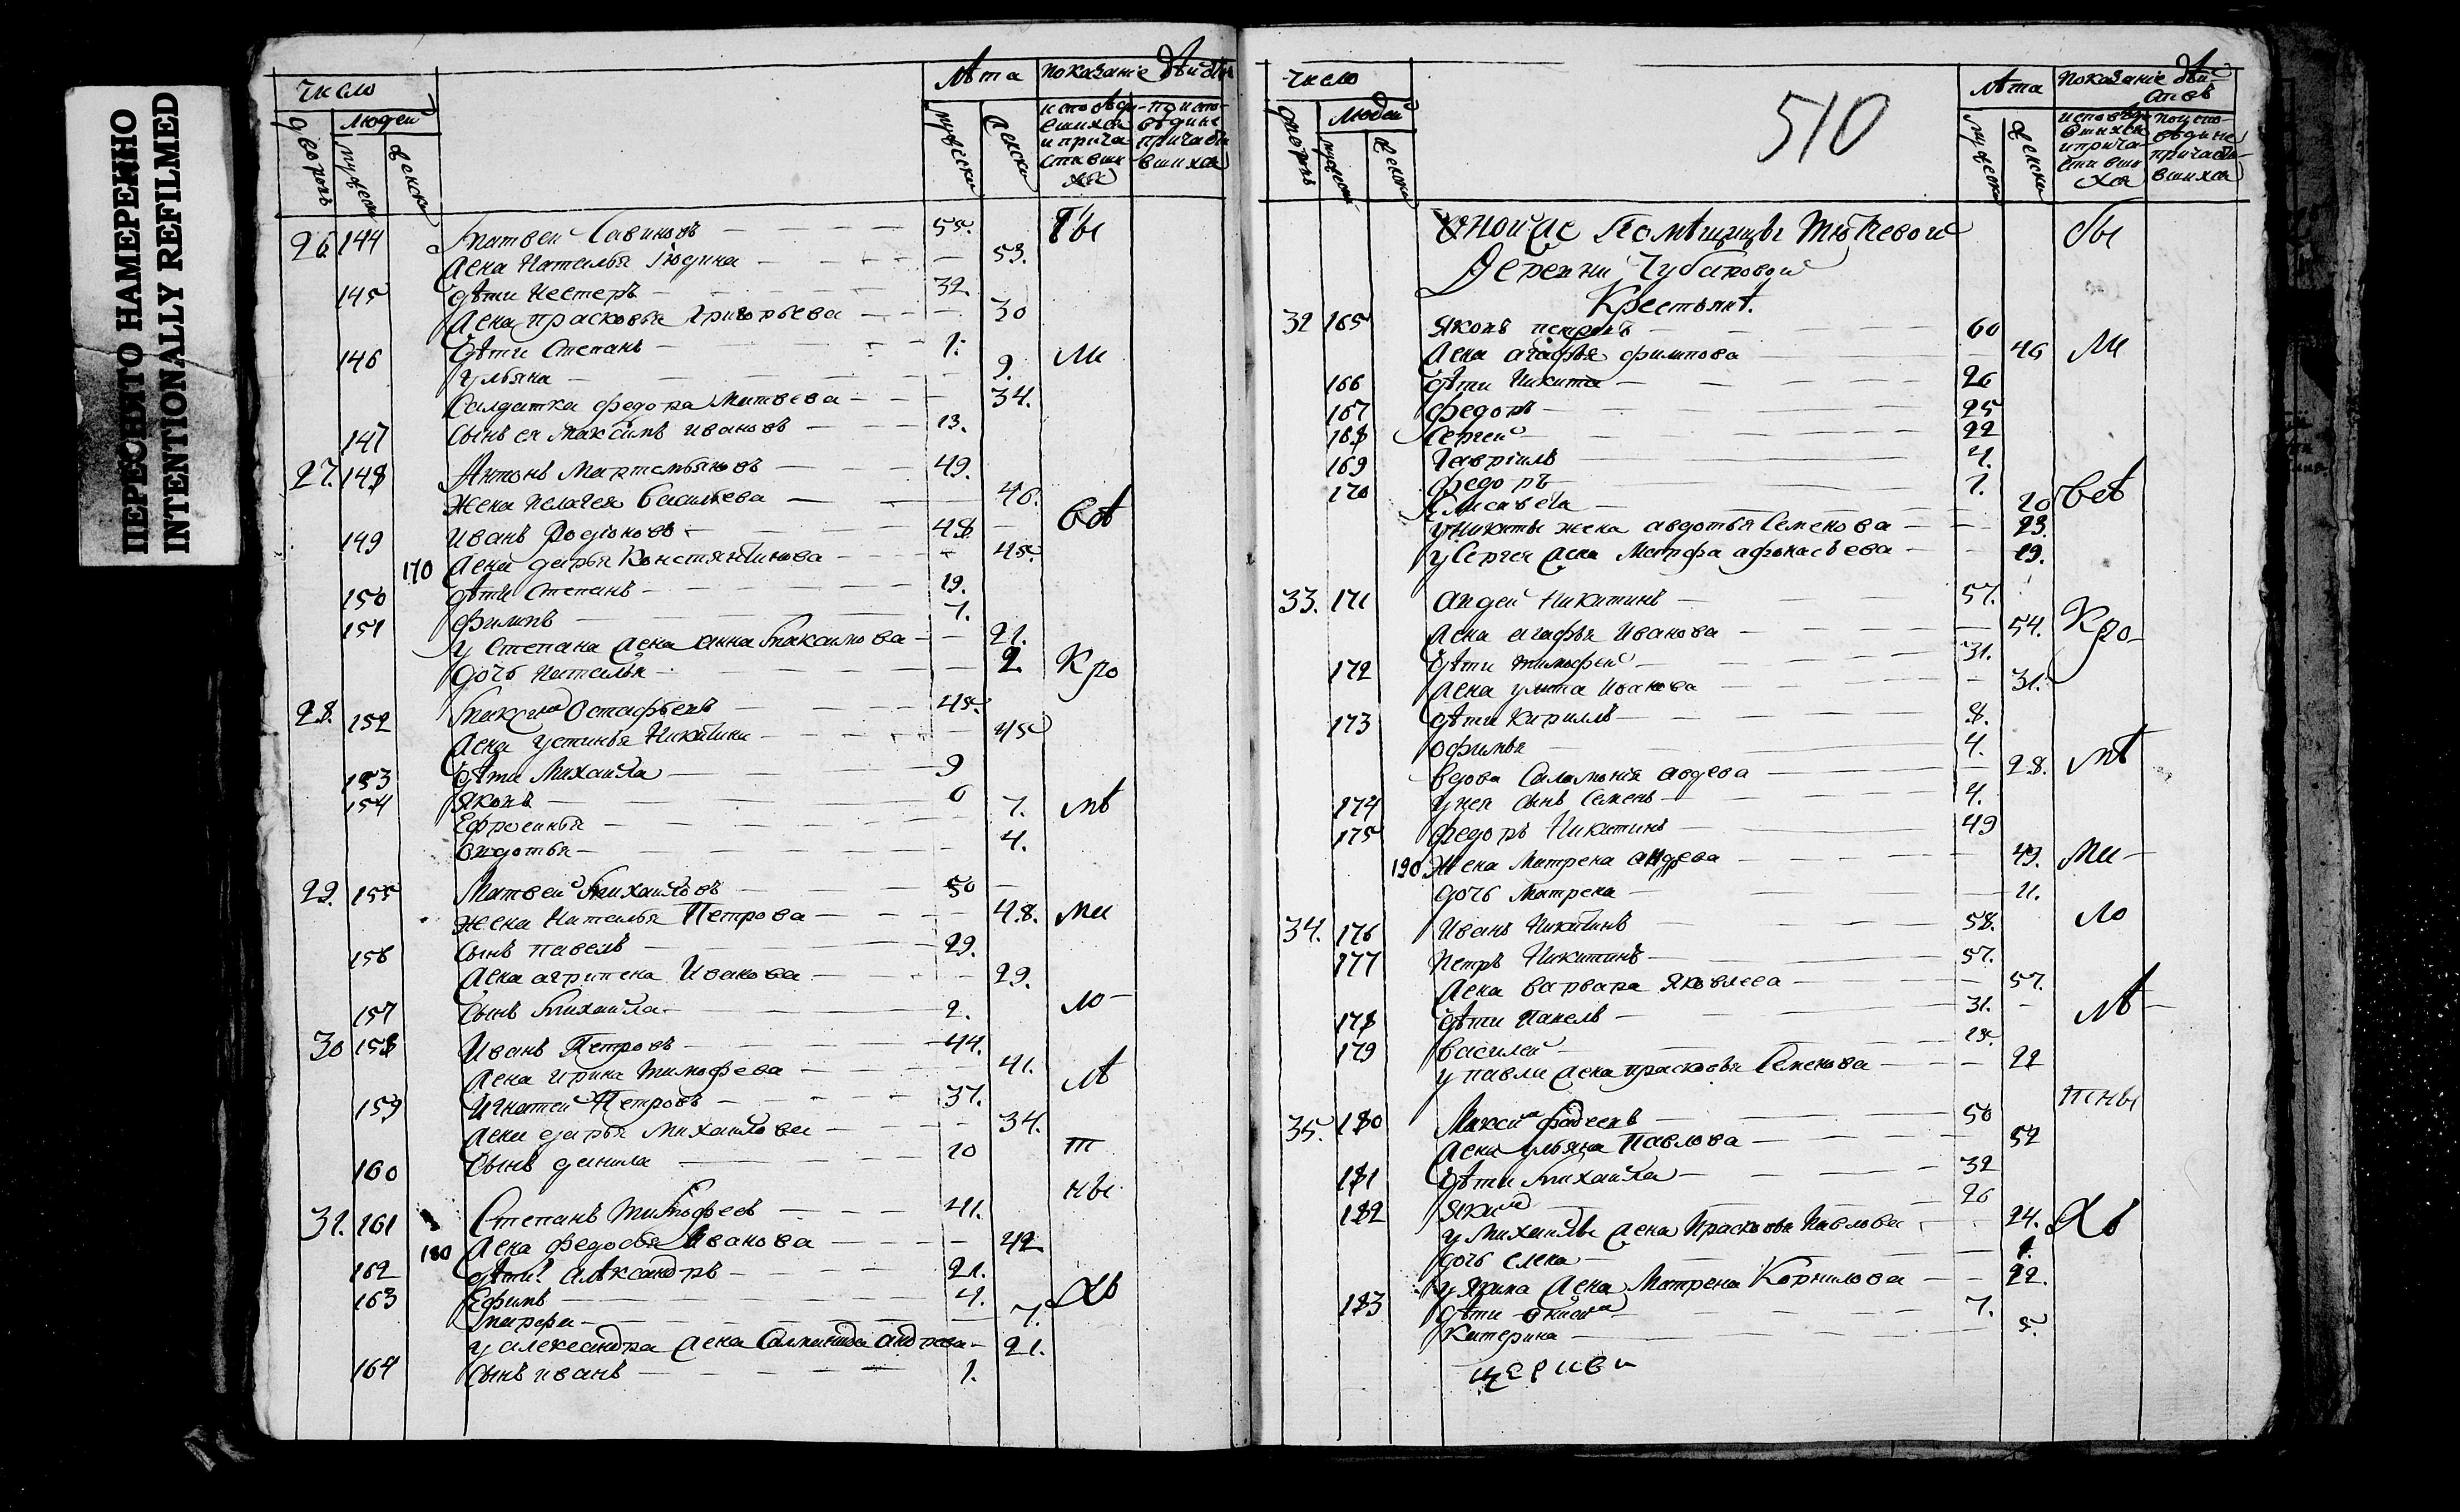 ПЕРЕСНЯТО НАМЕРЕННО
INTENTIONALLY REFILMED
Число лѣта показаніе дѣйств
дворовъ людей мужеска женска мужеска женска исповѣдавшихся и причастившихся по исповѣди не причастившихся
26 144 Матвей Савиновъ 55. бы
жена Наталья Юдина 53.
145 дѣти Нестеръ 32.
жена прасковья Григорьева 30
146 дѣти Степанъ 1. ли
Ульяна 9.
Салдатка федора Матвеева 34.
147 Сынъ ея Максимъ ивановъ 13.
27. 148 Антонъ Мартемьяновъ 49.
Жена Пелагея Васильева 46.
149 Иванъ Родіоновъ 48. всѣ
170 жена дарья Констянтинова 45.
150 дѣти Степанъ 19.
151 филипъ 7.
у Степана жена анна Максимова 21.
дочь Наталья 2 Кро
28. 152 Максим Остафьевъ 45.
жена устинья Никитина 45
153 дѣти Михайла 9
154 Яковъ 6
Ефросинья 7. мѣ
овдотья 4.
29. 155 Матвей Михайловъ 50
жена Наталья Петрова 48. ма
156 Сынъ павелъ 29.
жена агрипена Иванова 29.
157 Сынъ Михайла 2. ло
30 158 Иванъ Петровъ 44.
жена ирина Тимофеева 41. лѣ
159 Игнатей Петровъ 37.
жена дарья Михайлова 34.
160 Сынъ данила 10 т
ны
31. 161 Степанъ Тимофеевъ 41.
180 жена федосья Иванова 42
162 дѣти алѣксандръ 21.
163 Ефимъ 4. хъ
Марфа 7.
у александра жена Саломанида андреева 21.
164 Сынъ иванъ 1.
Число лѣта показаніе дѣйствъ
510
дворовъ людей мужеска женска мужеска женска исповѣдавшихся и причастившихся по исповѣди не причастившихся
оной же Помѣщицы Тютчевой бы
Деревни Чубаровой
Крестьянѣ.
32 165 Яковъ петровъ 60
жена агафья филипова 46 ли
166 дѣти Никита 26
167 федоръ 25
168 Сергей 22
169 Гавріилъ 4.
170 федоръ 1.
Елисавета 20 всѣ
у Никиты жена авдотья Семенова 23.
у Сергея жена Марфа афонасьева 19.
33. 171 андей Никитинъ 57.
жена агафья Иванова 54. Кро
172 дѣти тимофей 31.
жена улита Иванова 31.
173 дѣти Кирилъ 8.
офимья 4.
вдова Саламонія авдеева 28. мѣ
174 у нея сынъ Семенъ 4.
175 федоръ Никитинъ 49
190 Жена Матрена андреева 49. ма
дочь Матрена 11.
34. 176 Иванъ Никитинъ 58. ло
177 Петръ Никитинъ 57.
жена варвара Яковлева 57.
178 дѣти Павелъ 31. лѣ
179 василей 25.
у павла жена прасковья Семенова 22
тны
35. 180 Максим фадеевъ 50
жена ульяна Павлова 52
181 дѣти Михайла 32
182 Яким 26
у Михайлы жена Прасковья Павлова 24. хъ
дочь елена 1.
у Якима жена Матрена Корнилова 22.
183 дѣти 7.
Катерина 5.
церкви